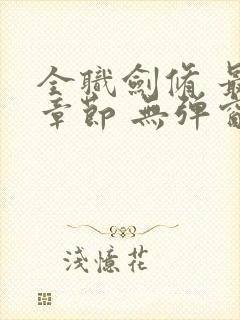 全職劍脩 最
章節 無彈窗
淺憶花